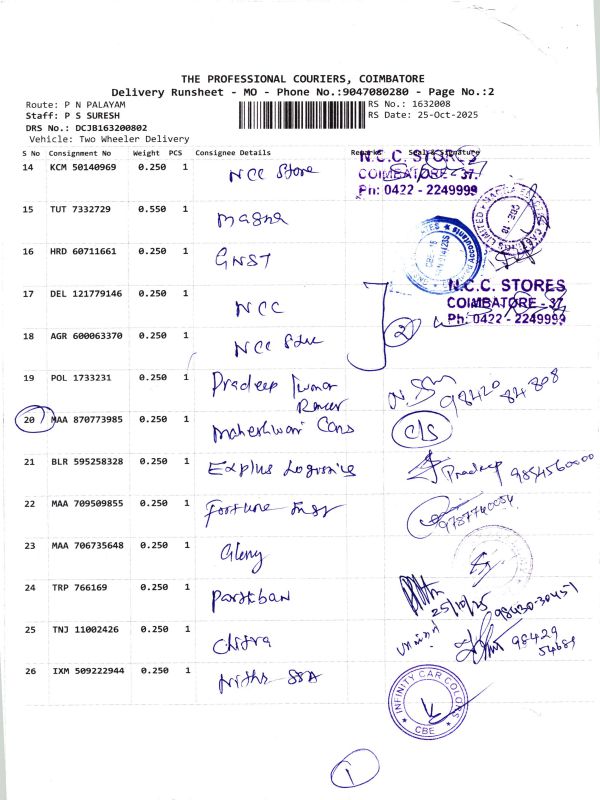 THE PROFESSIONAL COURIERS, COIMBATORE
Delivery Runsheet - MO - Phone No.:9047080280 - Page No.:2
Route: P N PALAYAM
RS No.: 1632008
Staff: P S SURESH
RS Date: 25-Oct-2025
DRS No.: DCJB163200802
Vehicle: Two Wheeler Delivery
S No Consignment No Weight PCS Consignee Details Remarks Seal & Signature
14 KCM 50140969 0.250 1 NCC Store
N.C.C. STORES
COIMBATORE - 37.
Ph: 0422 - 2249999
15 TUT 7332729 0.550 1 Magna
16 HRD 60711661 0.250 1 GNST
17 DEL 121779146 0.250 1 NCC
N.C.C. STORES
COIMBATORE - 37.
Ph: 0422 - 2249999
2
18 AGR 600063370 0.250 1 NCC
19 POL 1733231 0.250 1 Pradeep
98420 84808
20 MAA 870773985 0.250 1 Maheshwari Cans C/S
21 BLR 595258328 0.250 1 Explus Logistics Pradeep
22 MAA 709509855 0.250 1 Fortune
9787740054
23 MAA 706735648 0.250 1 Gleny
24 TRP 766169 0.250 1 Parthban
25/10/25 98430-30451
25 TNJ 11002426 0.250 1 Chitra
98429
54689
26 IXM 509222944 0.250 1
INFINITY CAR COLORS
CBE
1